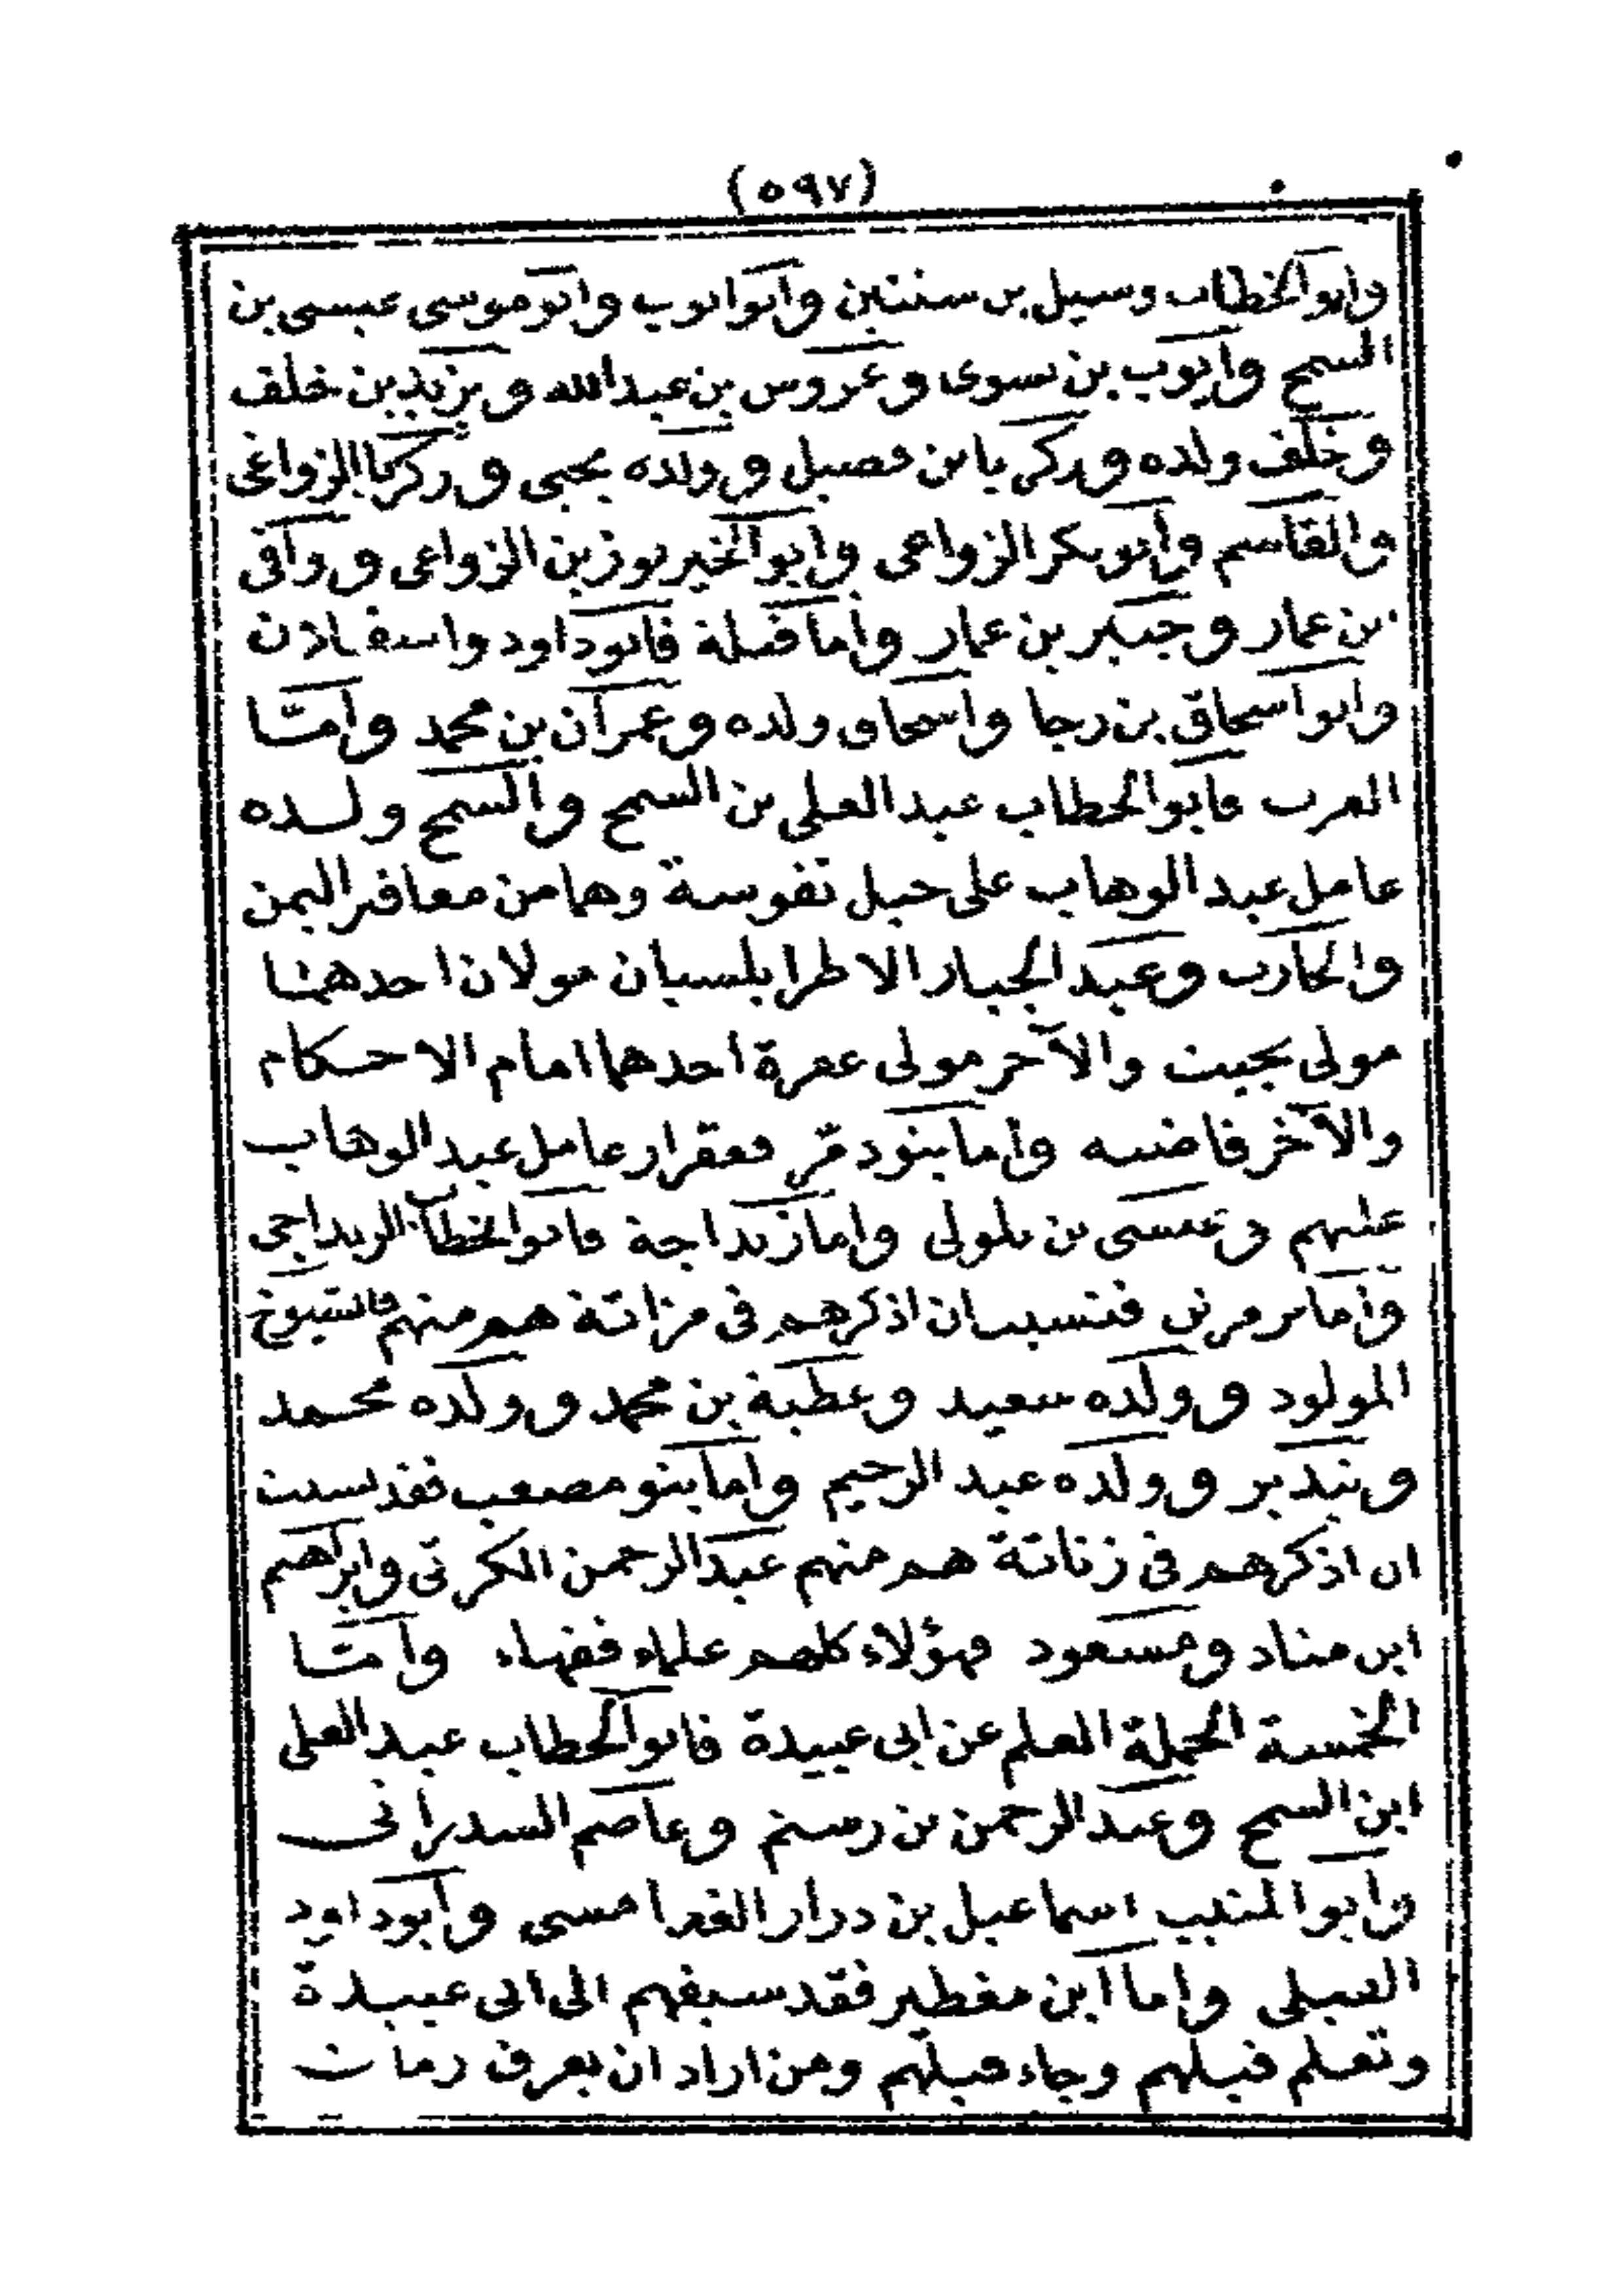 (٥٩٧)
وابو الخطاب وسيل بن سنتين وابو ايوب وابو موسى عيسى بن
السمح وايوب بن نسوى وعروس بن عبد الله ويزيد بن خلف
وخلف ولده وزكريا بن فصيل وولده يحيى وزكريا الزواغى
والقاسم وابو بكر الزواغى وابو الخير بوزين الزواغى وواقى
بن عمار وجبير بن عمار واما فضلة فابو داود واسفلان
وابو اسحاق بن رجا واسحاق ولده وعمران بن محمد وامّا
العرب فابو الخطاب عبد العلى بن السمح والسمح ولده
عامل عبد الوهاب على جبل نفوسة وهما من معافر اليمن
والحارب وعبد الجبار الاطرابلسيان مولان احدهما
مولى بجيت والآخر مولى عمرة احدهما امام الاحكام
والآخر قاضيه واما بنو دمّر فعقرار عامل عبد الوهاب
عليهم وعيسى بن بلولى واما زنداجة فابو الخطاب الزنداجى
واما فنسيت ان اذكرهم فى مزاتة هم منهم فالشيوخ
المولود وولده سعيد وعطية بن محمد وولده محمد
ويندير وولده عبد الرحيم واما بنو مصعب فقد نسيت
ان اذكرهم فى زناتة هم منهم عبد الرحمن الكرتى وابراهيم
ابن مناد ومسعود فهؤلاء كلهم علماء فقهاء وامّا
الخمسة الحملة العلم عن ابى عبيدة فابو الخطاب عبد العلى
ابن السمح وعبد الرحمن بن رستم وعاصم السدراتى
وابو المنيب اسماعيل بن درار الغدامسى وابو داود
القبلى واما ابن مغطير فقد سبقهم الى ابى عبيدة
وتعلم قبلهم وجاء قبلهم ومن اراد ان يعرف رمات